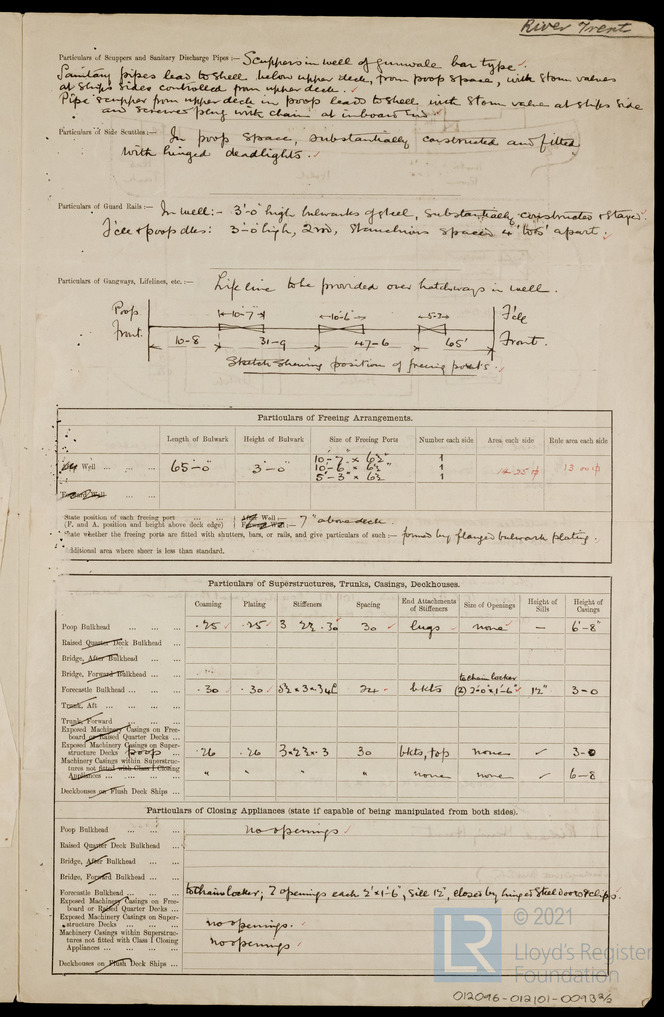 River Trent
Particulars of Scuppers and Sanitary Discharge Pipes :— Scuppers in well of gunwale bar type.
Sanitary pipes lead to shell below upper deck, from poop space, with storm valves
at ships sides controlled from upper deck.
Pipe scupper from upper deck in poop lead to shell with storm valve at ships side
and screwed plug with chain at inboard end
Particulars of Side Scuttles :— In poop space, substantially constructed and fitted
with hinged deadlights.
Particulars of Guard Rails :— In well :- 3'-0" high bulwarks of steel, substantially constructed & stayed.
F'cle & poop dks : 3'-0" high, 2 rod, stanchions spaced 4' apart.
Particulars of Gangways, Lifelines, etc. :— Life line to be provided over hatchways in well.
Poop Front. 10-7" 10-6" 5-3" F'cle Front.
10-8 31-9 47-6 65'
Sketch shewing position of freeing ports.
Particulars of Freeing Arrangements.
Length of Bulwark Height of Bulwark Size of Freeing Ports Number each side Area each side Rule area each side
Well ... ... ... 65'-0" 3'-0" 10'-7" x 6½" 1
10'-6" x 6½" 1
5'-3" x 6½ 1
Forward Well
State position of each freeing port ... ... ... After Well :—
(F. and A. position and height above deck edge) Forward Well :— 7" above deck.
State whether the freeing ports are fitted with shutters, bars, or rails, and give particulars of such :— formed by flanged bulwark plating.
Additional area where sheer is less than standard.
Particulars of Superstructures, Trunks, Casings, Deckhouses.
Coaming Plating Stiffeners Spacing End Attachments of Stiffeners Size of Openings Height of Sills Height of Casings
Poop Bulkhead ... ... ... .25 .25 3 2½ .30 30 lugs none — 6'-8"
Raised Quarter Deck Bulkhead ...
Bridge, After Bulkhead ... ...
Bridge, Forward Bulkhead ... ...
Forecastle Bulkhead ... ... ... .30 .30 24 bkts to chain locker (2) 2'-0" x 1'-6" 12" 3-0
Trunk, Aft ... ... ...
Trunk, Forward ... ... ...
Exposed Machinery Casings on Freeboard or Raised Quarter Decks ...
Exposed Machinery Casings on Superstructure Decks poop ... .26 .26 3 x 2½ x .3 30 bkts, top none 3-0
Machinery Casings within Superstructures not fitted with Class I Closing Appliances ... ... ... " " " " none none 6-8
Deckhouses on Flush Deck Ships ...
Particulars of Closing Appliances (state if capable of being manipulated from both sides).
Poop Bulkhead ... ... ... no openings
Raised Quarter Deck Bulkhead ...
Bridge, After Bulkhead ... ...
Bridge, Forward Bulkhead ... ...
Forecastle Bulkhead ... ... ... to chain locker; 2 openings each 2' x 1'-6", sill 12", closed by hinged steel doors & clips.
Exposed Machinery Casings on Freeboard or Raised Quarter Decks ...
Exposed Machinery Casings on Superstructure Decks ... ... ... no openings.
Machinery Casings within Superstructures not fitted with Class I Closing Appliances ... ... ... no openings
Deckhouses on Flush Deck Ships ...
LR © 2021
Lloyd's Register
Foundation
012096-012101-0093 2/2